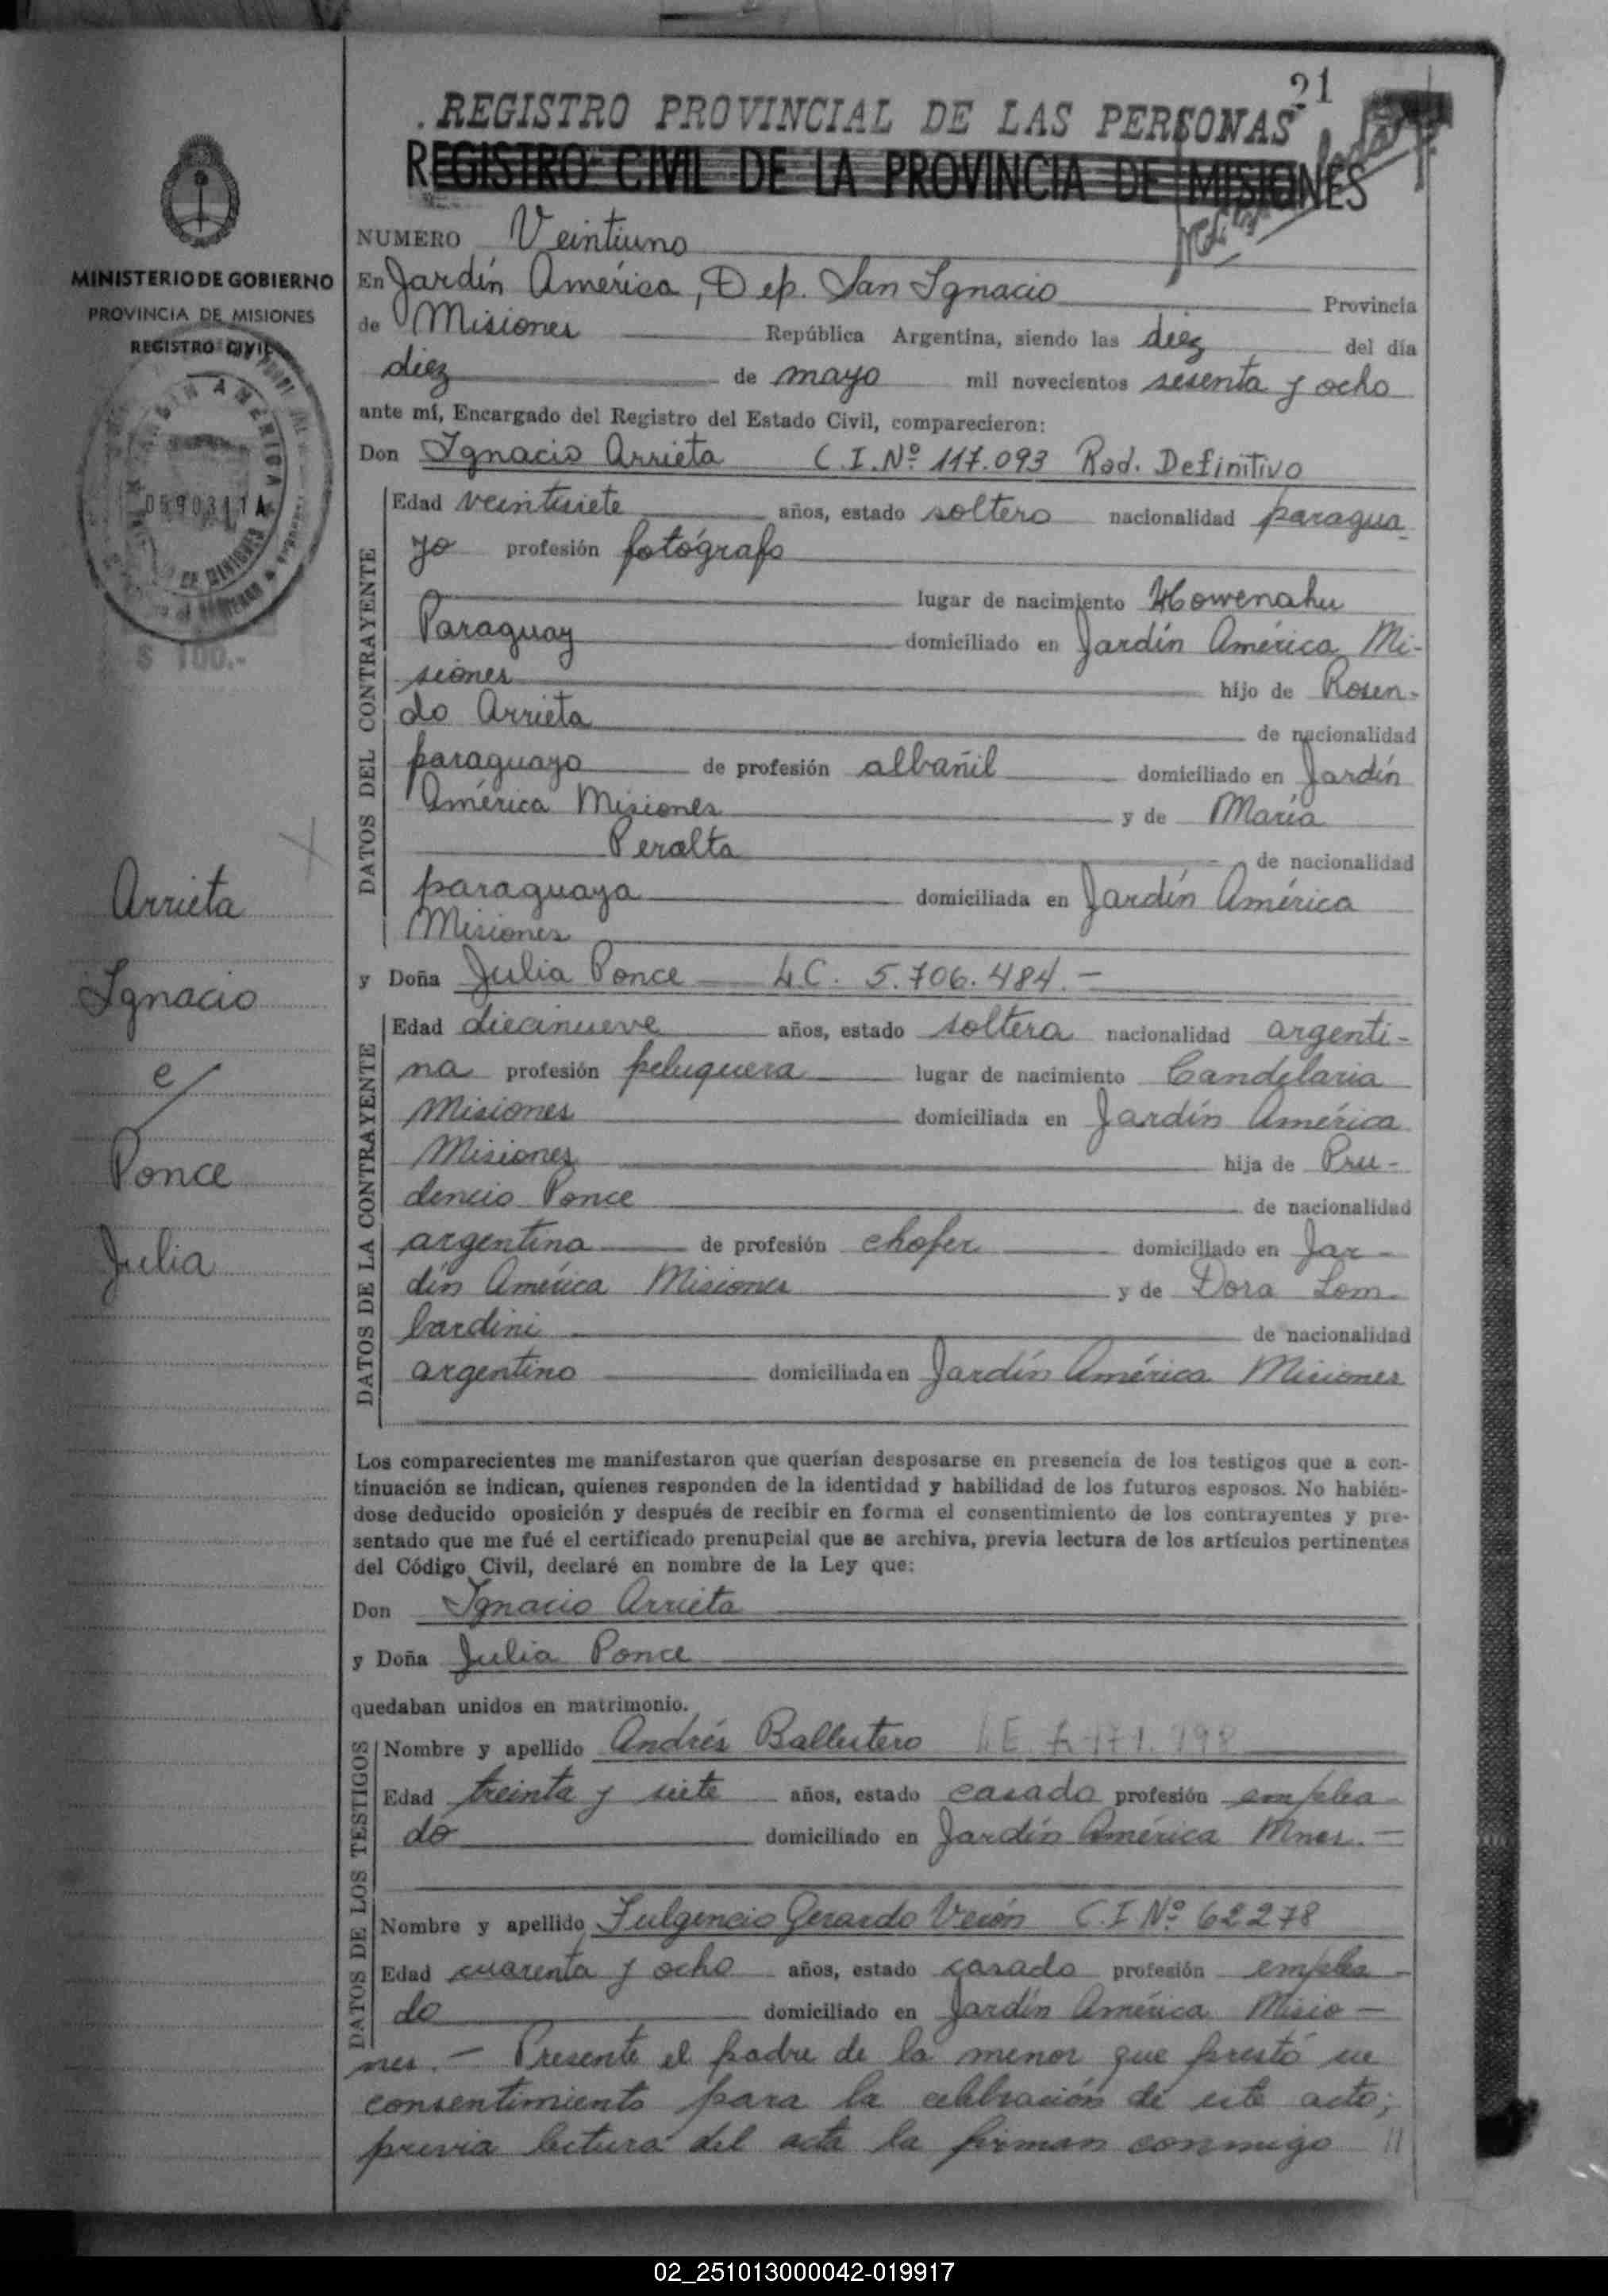 21
REGISTRO PROVINCIAL DE LAS PERSONAS
REGISTRO CIVIL DE LA PROVINCIA DE MISIONES
MINISTERIO DE GOBIERNO
PROVINCIA DE MISIONES
REGISTRO CIVIL
$ 100.-
Arrieta
Ignacio
c/
Ponce
Julia
NUMERO Veintiuno
En Jardín América, Dep. San Ignacio Provincia
de Misiones República Argentina, siendo las diez del día
diez de mayo mil novecientos sesenta y ocho
ante mí, Encargado del Registro del Estado Civil, comparecieron:
Don Ignacio Arrieta C.I.Nº 117.093 Rad. Definitivo
DATOS DEL CONTRAYENTE
Edad veintisiete años, estado soltero nacionalidad paragua-
yo profesión fotógrafo
lugar de nacimiento Howenahu
Paraguay domiciliado en Jardín América Mi-
siones hijo de Rosen-
do Arrieta de nacionalidad
paraguayo de profesión albañil domiciliado en Jardín
América Misiones y de María
Peralta de nacionalidad
paraguaya domiciliada en Jardín América
Misiones
y Doña Julia Ponce L.C. 5.706.484.-
DATOS DE LA CONTRAYENTE
Edad diecinueve años, estado soltera nacionalidad argenti-
na profesión peluquera lugar de nacimiento Candelaria
Misiones domiciliada en Jardín América
Misiones hija de Pru-
dencio Ponce de nacionalidad
argentina de profesión chofer domiciliado en Jar-
dín América Misiones y de Dora Lom-
bardini de nacionalidad
argentino domiciliada en Jardín América Misiones
Los comparecientes me manifestaron que querían desposarse en presencia de los testigos que a con-
tinuación se indican, quienes responden de la identidad y habilidad de los futuros esposos. No habién-
dose deducido oposición y después de recibir en forma el consentimiento de los contrayentes y pre-
sentado que me fué el certificado prenupcial que se archiva, previa lectura de los artículos pertinentes
del Código Civil, declaré en nombre de la Ley que:
Don Ignacio Arrieta
y Doña Julia Ponce
quedaban unidos en matrimonio.
DATOS DE LOS TESTIGOS
Nombre y apellido Andrés Ballestero L.E.
Edad treinta y siete años, estado casado profesión emplea-
do domiciliado en Jardín América Mnes.-
Nombre y apellido Fulgencio Gerardo Verón C.I Nº 62278
Edad cuarenta y ocho años, estado casado profesión emplea-
do domiciliado en Jardín América Misio-
nes.- Presente el padre de la menor que prestó su
consentimiento para la celebración de este acto;
previa lectura del acta la firman conmigo //
02_251013000042-019917